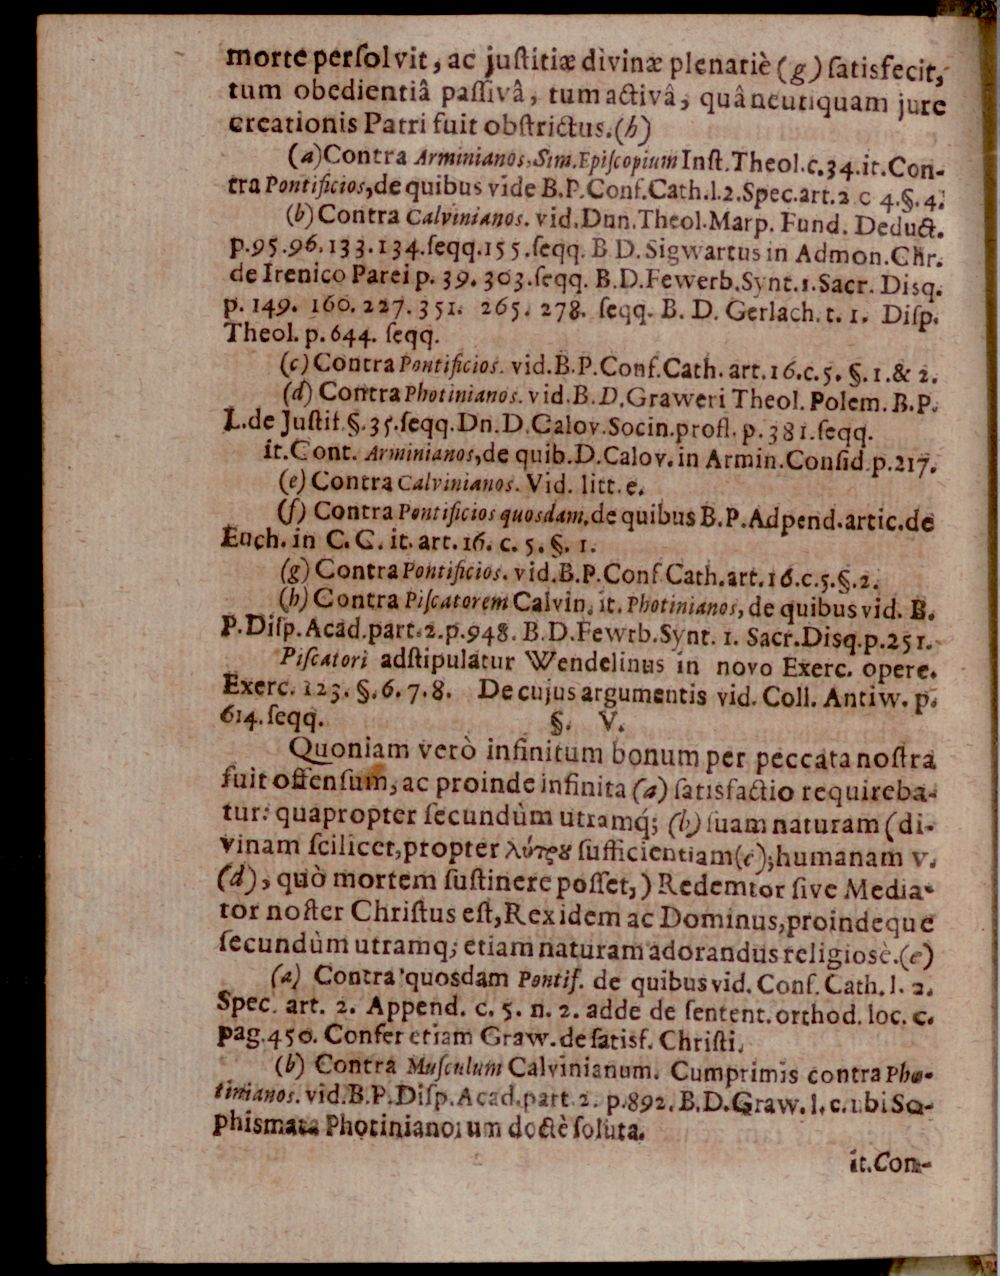 morte persolvit, ac justitiæ divinæ plenariè (g) satisfecit,
tum obedientiâ passivâ, tum activâ, quâ neutiquam jure
creationis Patri fuit obstrictus. (h)
(a) Contra Arminianos, Sim. Episcopium Inst. Theol. c. 34. it. Con-
tra Pontificios, de quibus vide B. P. Conf. Cath. l. 2. Spec. art. 2 c 4. §. 4.
(b) Contra Calvinianos. vid. Dnn. Theol. Marp. Fund. Deduct.
p. 95. 96. 133. 134. seqq. 155. seqq. B D. Sigwartus in Admon. Chr.
de Irenico Parei p. 39. 303. seqq. B. D. Fewerb. Synt. 1. Sacr. Disq.
p. 149. 160. 227. 351. 265. 278. seqq. B. D. Gerlach. t. 1. Disp.
Theol. p. 644. seqq.
(c) Contra Pontificios. vid. B. P. Conf. Cath. art. 16. c. 5. §. 1. & 2.
(d) Contra Photinianos. vid. B. D. Graweri Theol. Polem. B. P.
L. de Justif. §. 35. seqq. Dn. D. Calov. Socin. profl. p. 381. seqq.
it. Cont. Arminianos, de quib. D. Calov. in Armin. Consid. p. 217.
(e) Contra Calvinianos. Vid. litt. e.
(f) Contra Pontificios quosdam, de quibus B. P. Adpend. artic. de
Euch. in C. C. it. art. 16. c. 5. §. 1.
(g) Contra Pontificios. vid. B. P. Conf Cath. art. 16. c. 5. §. 2.
(h) Contra Piscatorem Calvin. it. Photinianos, de quibus vid. B.
P. Disp. Acad. part. 2. p. 948. B. D. Fewrb. Synt. 1. Sacr. Disq. p. 251.
Piscatori adstipulatur Wendelinus in novo Exerc. opere.
Exerc. 123. §. 6. 7. 8. De cujus argumentis vid. Coll. Antiw. p.
614. seqq.
§. V.
Quoniam verò infinitum bonum per peccata nostra
fuit offensum, ac proinde infinita (a) satisfactio requireba-
tur: quapropter secundùm utramq; (b) suam naturam (di-
vinam scilicet, propter λύτρȣ sufficientiam (c); humanam v.
(d), quò mortem sustinere posset,) Redemtor sive Media-
tor noster Christus est, Rex idem ac Dominus, proindeque
secundùm utramq; etiam naturam adorandus religiosè. (e)
(a) Contra quosdam Pontif. de quibus vid. Conf. Cath. l. 2.
Spec. art. 2. Append. c. 5. n. 2. adde de sentent. orthod. loc. c.
pag. 450. Confer etiam Graw. de satisf. Christi.
(b) Contra Musculum Calvinianum. Cumprimis contra Pho-
tinianos. vid. B. P. Disp. Acad. part 2. p. 892. B. D. Graw. l. c. ubi So-
phismata Photinianorum doctè soluta.
it. Con-